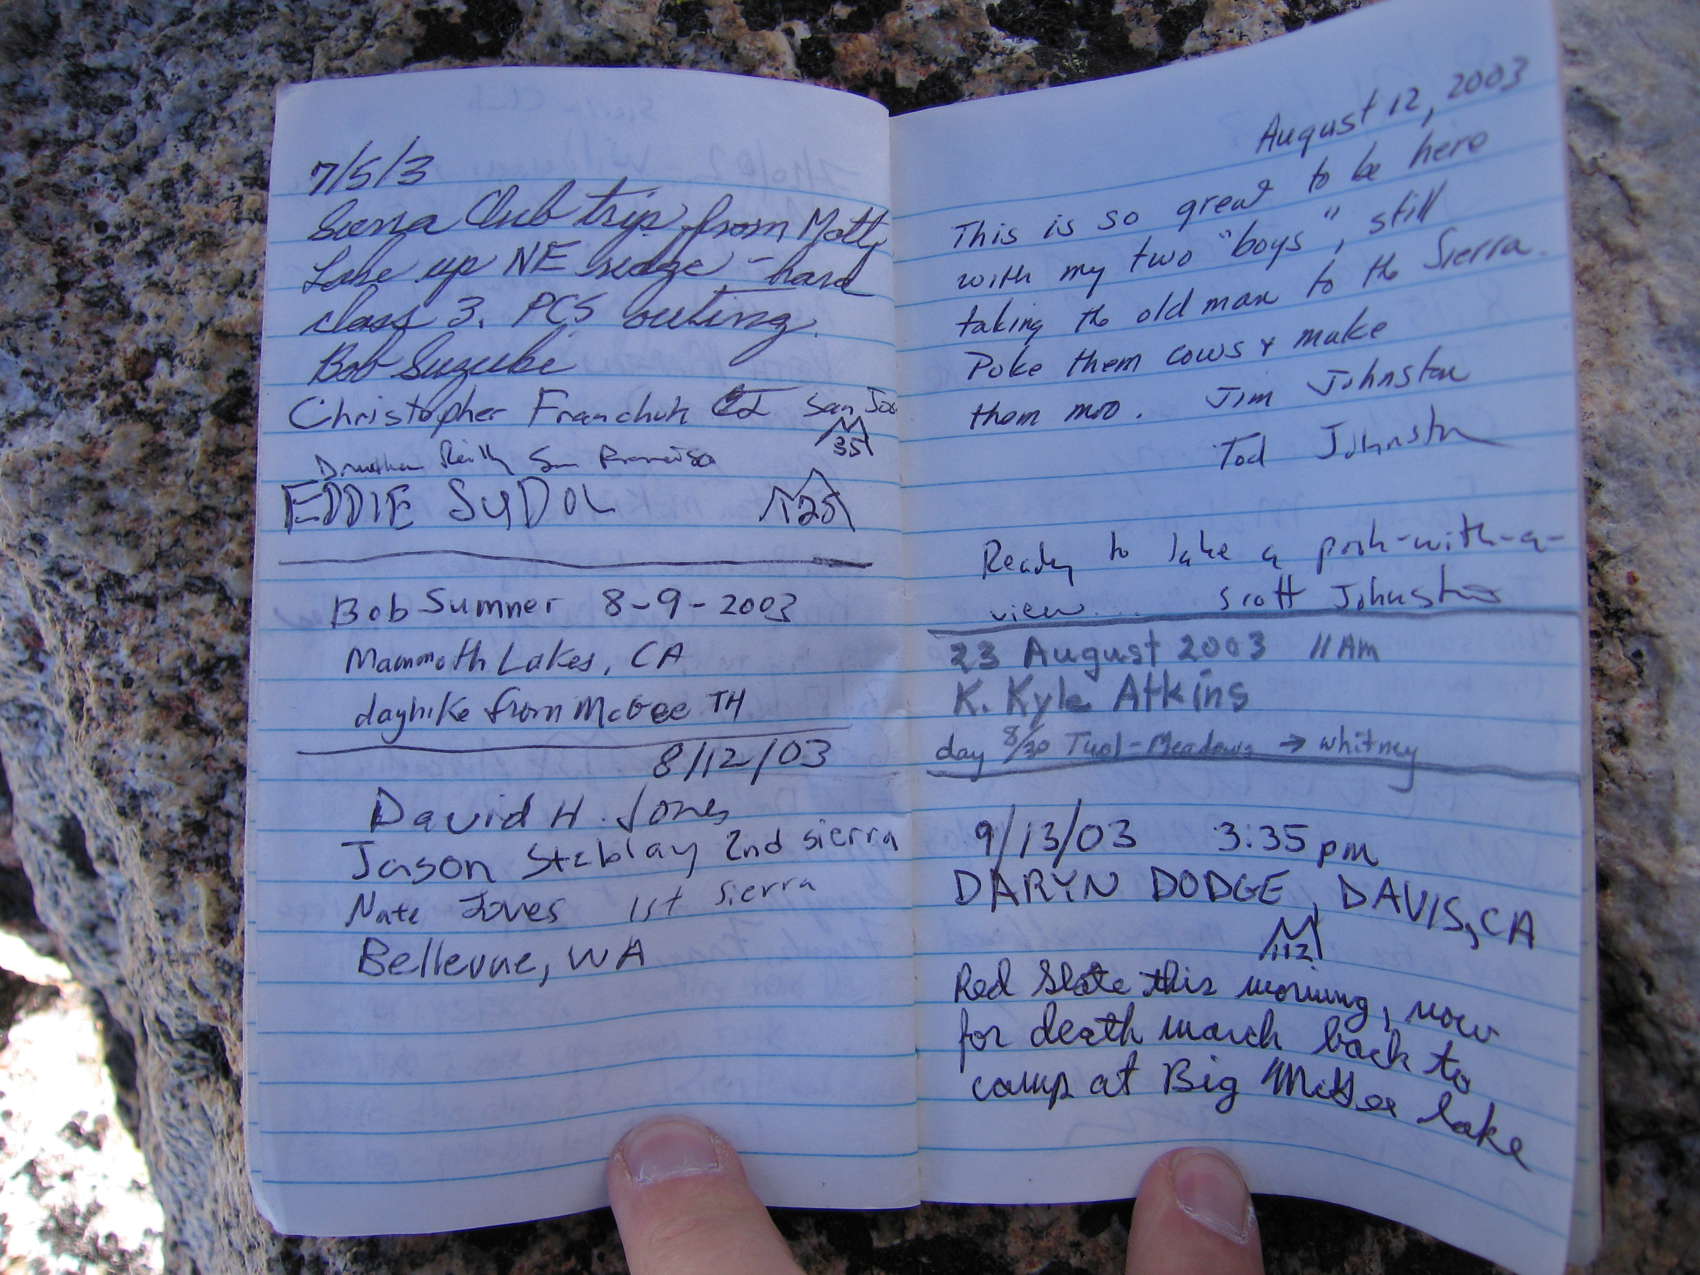 7/5/3
Sierra Club trip from Motty
Lake up NE ridge - hard
class 3. PCS outing.
Bob Suzuki
Christopher Franchuk San Jose
35
Reilly San Francisco
EDDIE SUDOL 125
Bob Sumner 8-9-2003
Mammoth Lakes, CA
dayhike from McGee TH
8/12/03
David H. Jones
Jason Steblay 2nd sierra
Nate Jones 1st sierra
Bellevue, WA
August 12, 2003
This is so great to be here
with my two "boys", still
taking the old man to the Sierra.
Poke them cows & make
them moo. Jim Johnston
Tod Johnston
Ready to take a posh-with-a-
view.... Scott Johnston
23 August 2003 11 AM
K. Kyle Atkins
day 8/30 Tuol-Meadows → Whitney
9/13/03 3:35 pm
DARYN DODGE, DAVIS, CA
112
Red Slate this morning, now
for death march back to
camp at Big McGee lake